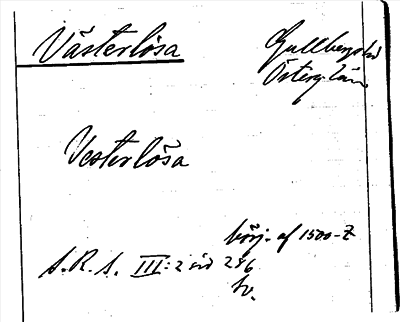 Västerlösa
Gullbergs hd
Östergl. län
Vesterlösa
börj. af 1500-t
S.R.S. III:2 sid 286
Sv.